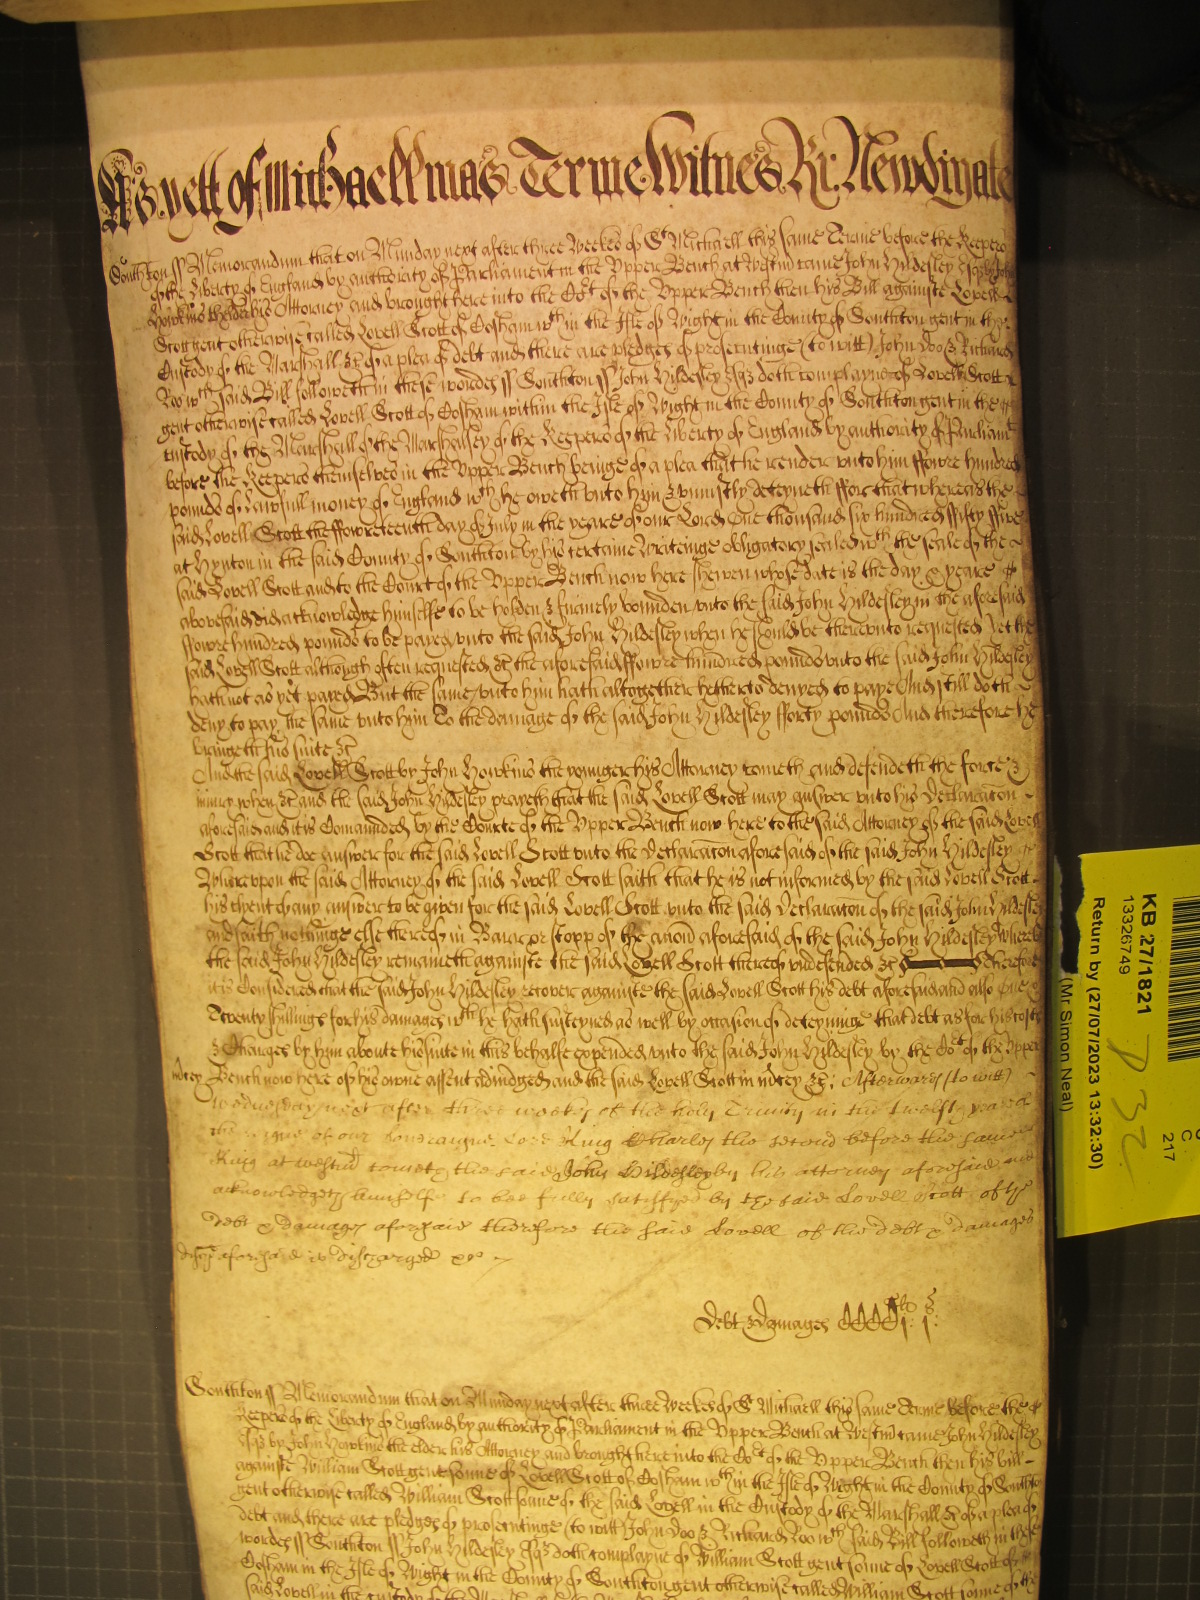 As yett of Michaellmas Terme Witnes Ri: Newdigate
Southton ss Memorandum that on Munday next after three Weekes of St Michaell this same Terme before the Keepers
of the Liberty of England by authoritty of Parliament in the Upper Bench at Westmr came John Hildesley Esqr by John
Howkins the elder his Attorney and brought here into the Cort of the Upper Bench then his Bill againste Lovell
Scott gent otherwise called Lovell Scott of Cosham wthin the Isle of Wight in the County of Southton gent in the
Custody of the Marshall &c of a plea of debt and there are pledges of prosecutinge (to witt) John Doo & Richard
Roo wch said Bill followeth in these wordes ss Southton ss John Hildesley Esqr doth complayne of Lovell Scott
gent otherwise called Lovell Scott of Cosham within the Isle of Wight in the County of Southton gent in the
custody of the Marshall of the Marshalsey of the Keepers of the Liberty of England by authority of Parliamt
before the Keepers themselves in the Upper Bench beinge of a plea that he render unto him ffowre hundred
pounds of Lawfull money of England wch he oweth unto him & uniustly deteyneth ffor that whereas the
said Lovell Scott the ffowreteenth day of July in the yeare of our Lord One thousand six hundred ffifty ffive
at Hynton in the said County of Southton by his certaine Writeinge obligatory sealed wth the seale of the
said Lovell Scott and to the Court of the Upper Bench now here shewen whose date is the day & yeare
abovesaid did acknowledge himselfe to be holden & firmely bounden unto the said John Hildesley in the aforesaid
ffowre hundred pounds to be payed unto the said John Hildesley when he should be thereunto requested Yet the
said Lovell Scott although often requested &c the aforesaid ffowre hundred pounds unto the said John Hildesley
hath not as yet payed But the same unto him hath altogether hetherto denyed to paye And still doth
deny to pay the same unto him To the damage of the said John Hildesley fforty pounds And therefore he
bringeth his suite &c
And the said Lovell Scott by John Howkins the younger his Attorney cometh and defendeth the force &
iniury when &c and the said John Hildesley prayeth that the said Lovell Scott may answer unto his Declaraton
aforesaid and it is Comaunded by the Courte of the Upper Bench now here to the said Attorney of the said Lovell
Scott that he doe answer for the said Lovell Scott unto the Declaraton aforesaid of the said John Hildesley
Whereupon the said Attorney of the said Lovell Scott saith that he is not informed by the said Lovell Scott
his clyent of any answer to be given for the said Lovell Scott unto the said Declaraton of the said John Hildesley
and saith nothinge else thereof in Barr or stopp of the accon aforesaid of the said John Hildesley Whereby
the said John Hildesley remaineth againste the said Lovell Scott thereof undefended &c Therefore
it is Considered that the said John Hildesley recover againste the said Lovell Scott his debt aforesaid and also One &
Twenty shillings for his damages wch he hath susteyned as well by occasion of deteyninge that debt as for his costs
& Charges by him aboute his suite in this behalfe expended unto the said John Hildesley by the Cort of the Upper
mcey Bench now here of his owne assent adiudged and the said Lovell Scott in mcey &c; Afterwards (to witt)
Wednesday next after three weekes of the holy Trinity in the twelfth yeare of
the reigne of our soveraigne Lord King Charles the second before the same
King at Westmr cometh the said John Hildesley by his attorney aforesaid and
acknowledgeth himselfe to bee fully satisfyed by the said Lovell Scott of the
debt & damages aforesaid therefore the said Lovell of the debt & damages
aforesaid is discharged &c
Debt & damages CCCCjli js
Southton ss Memorandum that on Munday next after three Weekes of St Michaell this same Terme before the
Keepers of the Liberty of England by authority of Parliament in the Upper Bench at Westmr came John Hildesley
Esqr by John Howkins the elder his Attorney and brought here into the Cort of the Upper Bench then his bill
againste William Scott gent sonne of Lovell Scott of Cosham wthin the Isle of Wight in the County of Southton
gent otherwise called William Scott sonne of the said Lovell in the Custody of the Marshall &c of a plea of
debt and there are pledges of prosecutinge (to witt) John Doo & Richard Roo wch said Bill followeth in these
wordes ss Southton ss John Hildesley Esqr doth complayne of William Scott gent sonne of Lovell Scott of
Cosham in the Isle of Wight in the County of Southton gent otherwise called William Scott sonne of the
said Lovell in the custody of the
KB 27/1821
13326749
Return by (27/07/2023 13:32:30)
(Mr Simon Neal)
C
217
D 32